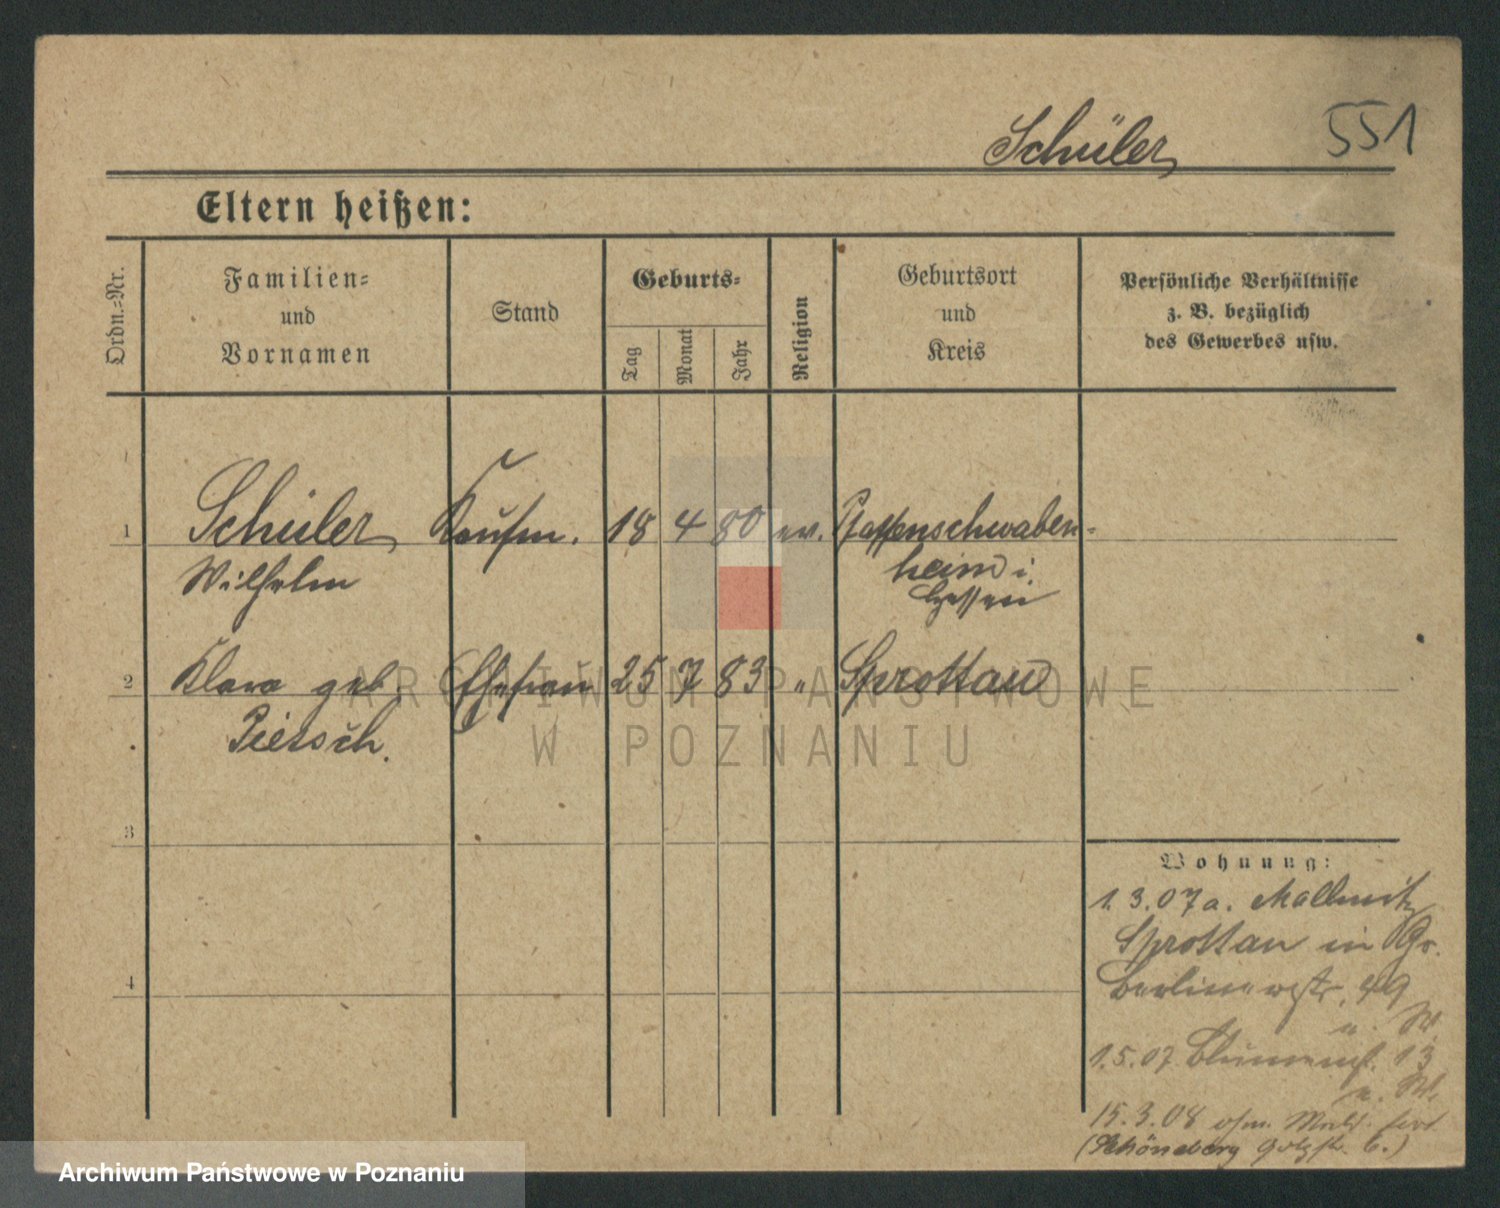 Schüler 551
Eltern heißen:
Ordn.=Nr.
Familien=
und
Vornamen
Stand
Geburts=
Tag
Monat
Jahr
Religion
Geburtsort
und
Kreis
Persönliche Verhältnisse
z. B. bezüglich
des Gewerbes usw.
1 Schüler Kaufm. 18 4 80 ev. Pfaffenschwaben-
Wilhelm heim i.
Hessen
2 Klara geb. Ehefrau 25 7 83 " Sprottau
Pietsch.
3
4
Wohnung:
1.3.07 a. Mallmitz
Sprottau in
Berlinerstr. 49
u. W.
1.5.07 Blumenst. 13
u. W.
15.3.08 ohn. fort
(Schöneberg 6.)
ARCHIWUM PAŃSTWOWE
W POZNANIU
Archiwum Państwowe w Poznaniu